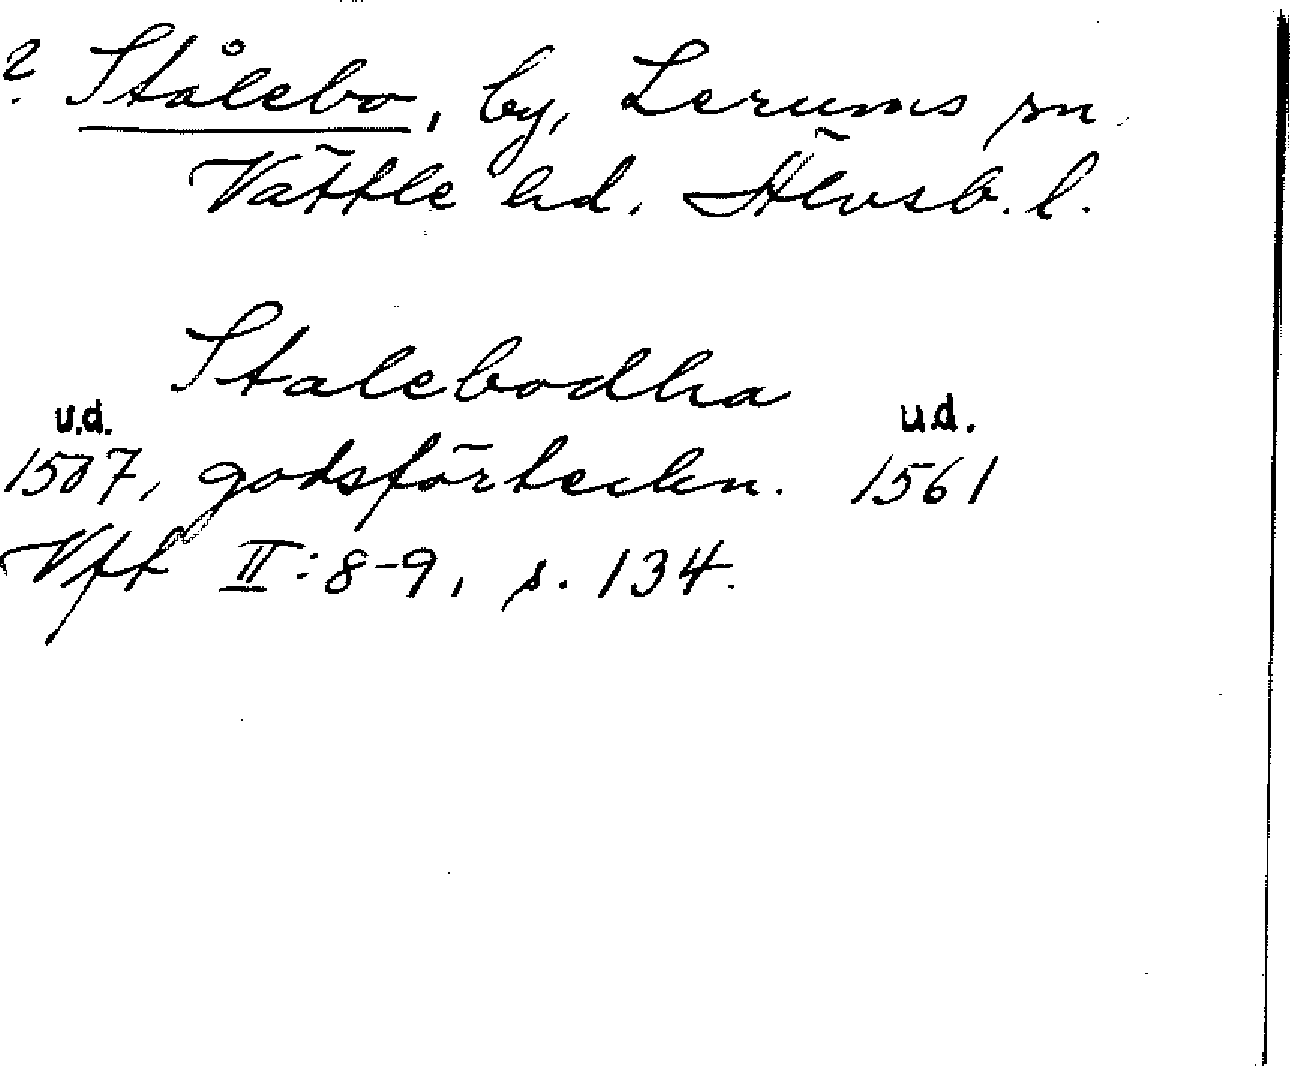 ? Stålebo, by, Lerums sn.
Vättle hd. Älvsb. l.
Stalebodha
u.d. u.d.
1507, godsförteckn. 1561
Vff II:8-9, s. 134.